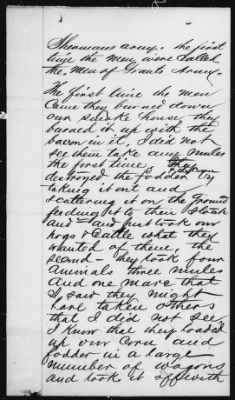 Shermans army. the first
time the men were called
the men of Grants Army.
The first time the men
Came they burned down
our smoke house, they
burned it up with the
bacon in it. I did not
see them take any mules
the first time. they
destroyed the fodder by
taking it out and
scattering it on the ground
feeding it to their stock
and and just took our
hogs & Cattle what they
wanted of them, the
second they took four
Animals three mules
And one mare that
I saw they might
have taken others
that I did not see
I know that they loaded
up our Corn and
fodder in a large
number of wagons
and took it off with